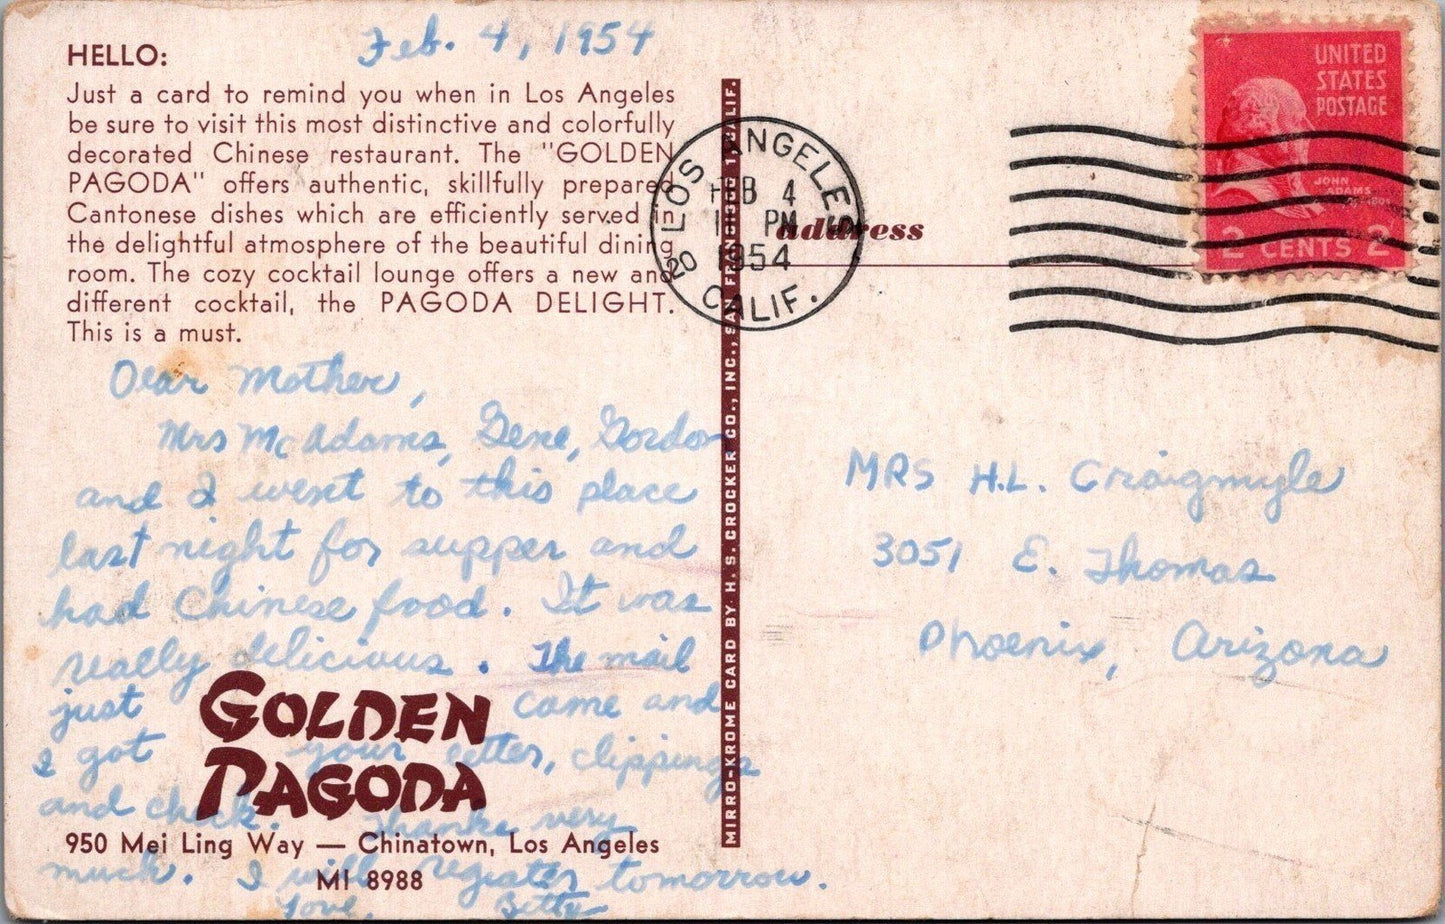 Feb. 4, 1954
HELLO:
Just a card to remind you when in Los Angeles
be sure to visit this most distinctive and colorfully
decorated Chinese restaurant. The "GOLDEN
PAGODA" offers authentic, skillfully prepared
Cantonese dishes which are efficiently served in
the delightful atmosphere of the beautiful dining
room. The cozy cocktail lounge offers a new and
different cocktail, the PAGODA DELIGHT.
This is a must.
Dear Mother,
Mrs McAdams, Gene, Gordon
and I went to this place
last night for supper and
had Chinese food. It was
really delicious. The mail
just came and
I got your letter, clippings
and check. Thanks very
much. I will register tomorrow.
Love, Betty
GOLDEN
PAGODA
950 Mei Ling Way — Chinatown, Los Angeles
MI 8988
MIRRO-KROME CARD BY H. S. CROCKER CO., INC., SAN FRANCISCO 1, CALIF.
LOS ANGELES
20 CALIF.
FEB 4
PM
1954
address
UNITED
STATES
POSTAGE
JOHN
ADAMS
2 CENTS 2
MRS H.L. Craigmyle
3051 E. Thomas
Phoenix, Arizona